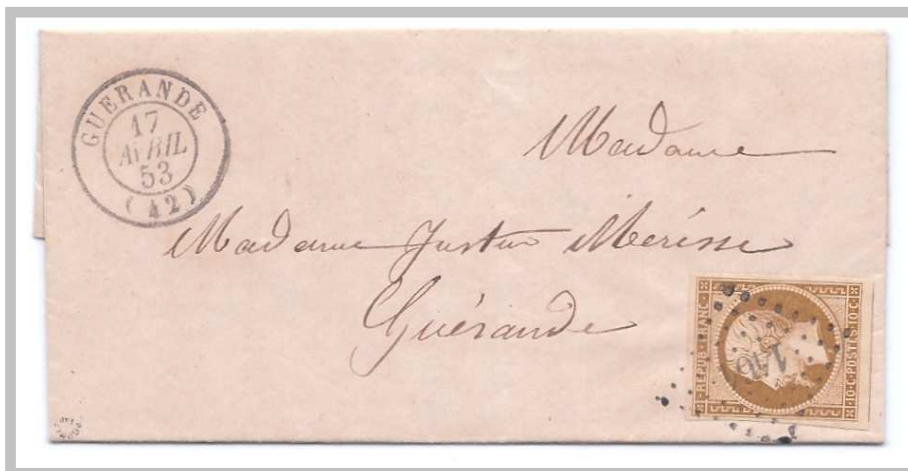 GUERANDE
17
AVRIL
53
(42)
Madame
Madame Justin Merisse
Guérande
REPUB·FRANC·
10·C·POSTES·10·C·